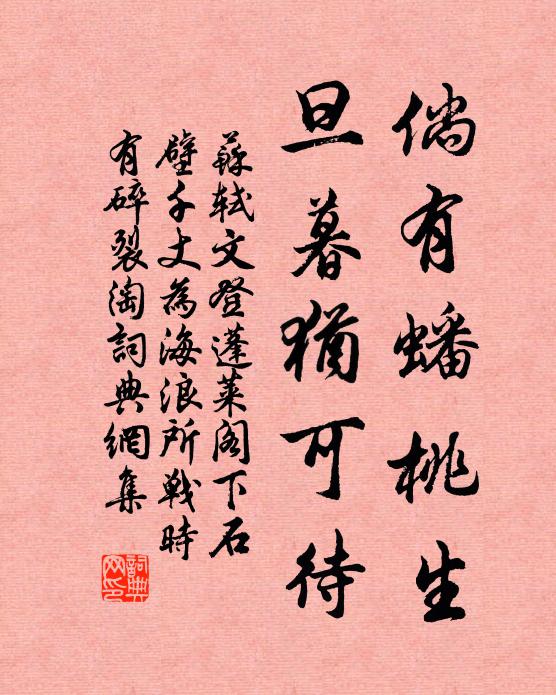 倘有蟠桃生
旦暮猶可待
蘇軾文登蓬萊閣下石
壁千丈為海浪所戰時
有碎裂淘詞典網集
詞典
网印